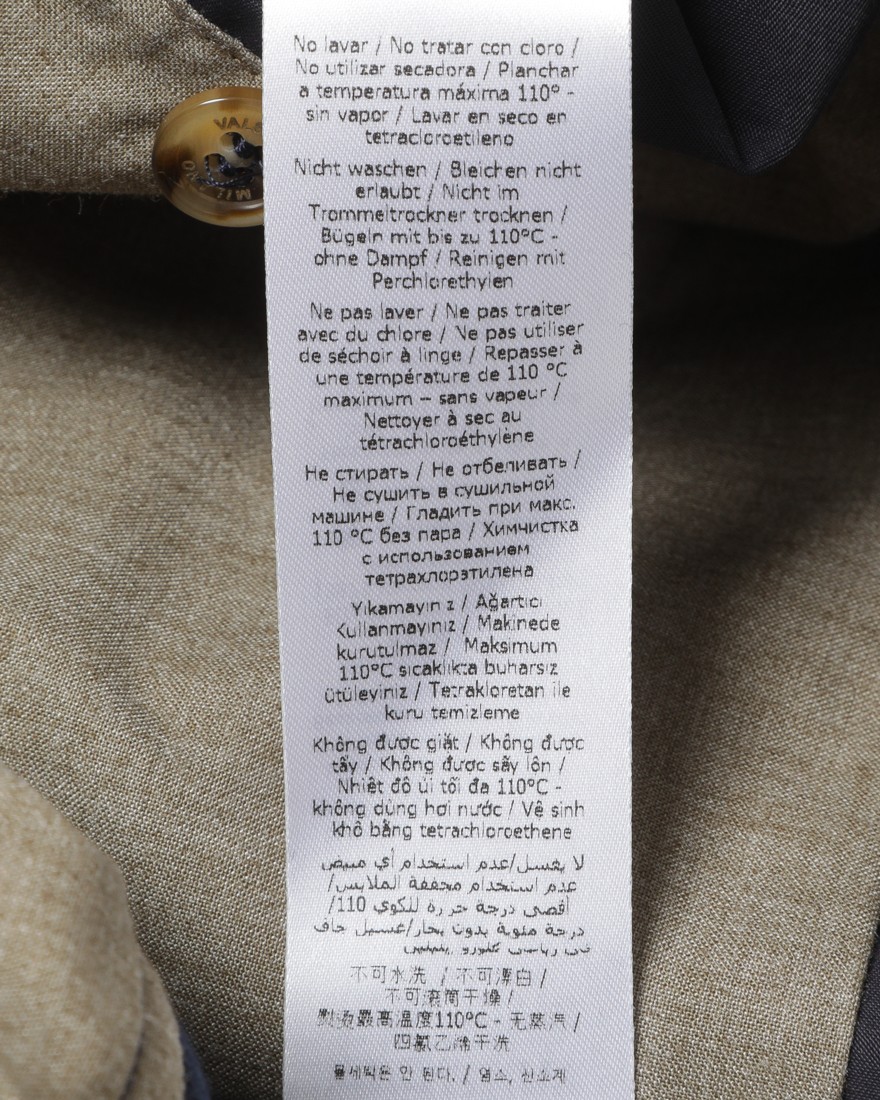 No lavar / No tratar con cloro /
No utilizar secadora / Planchar
a temperatura máxima 110° -
sin vapor / Lavar en seco en
tetracloroetileno
Nicht waschen / Bleichen nicht
erlaubt / Nicht im
Trommeltrockner trocknen /
Bügeln mit bis zu 110°C -
ohne Dampf / Reinigen mit
Perchlorethylen
Ne pas laver / Ne pas traiter
avec du chlore / Ne pas utiliser
de séchoir à linge / Repasser à
une température de 110 °C
maximum – sans vapeur /
Nettoyer à sec au
tétrachloroéthylène
Не стирать / Не отбеливать /
Не сушить в сушильной
машине / Гладить при макс.
110 °C без пара / Химчистка
с использованием
тетрахлорэтилена
Yıkamayınız / Ağartıcı
Kullanmayınız / Makinede
kurutulmaz / Maksimum
110°C sıcaklıkta buharsız
ütüleyiniz / Tetrakloretan ile
kuru temizleme
Không được giặt / Không được
tẩy / Không được sấy lồn /
Nhiệt độ ủi tối đa 110°C -
không dùng hơi nước / Vệ sinh
khô bằng tetrachloroethene
لا يغسل/عدم استخدام أي مبيض
عدم استخدام مجففة الملابس/
أقصى درجة حرارة للكوي 110/
درجة مئوية بدون بخار/غسيل جاف
不可水洗 / 不可漂白 /
不可滚筒干燥 /
熨烫最高温度110°C - 无蒸汽 /
四氯乙烯干洗
물세탁은 안 된다. / 염소, 산소계
VALE
MIL